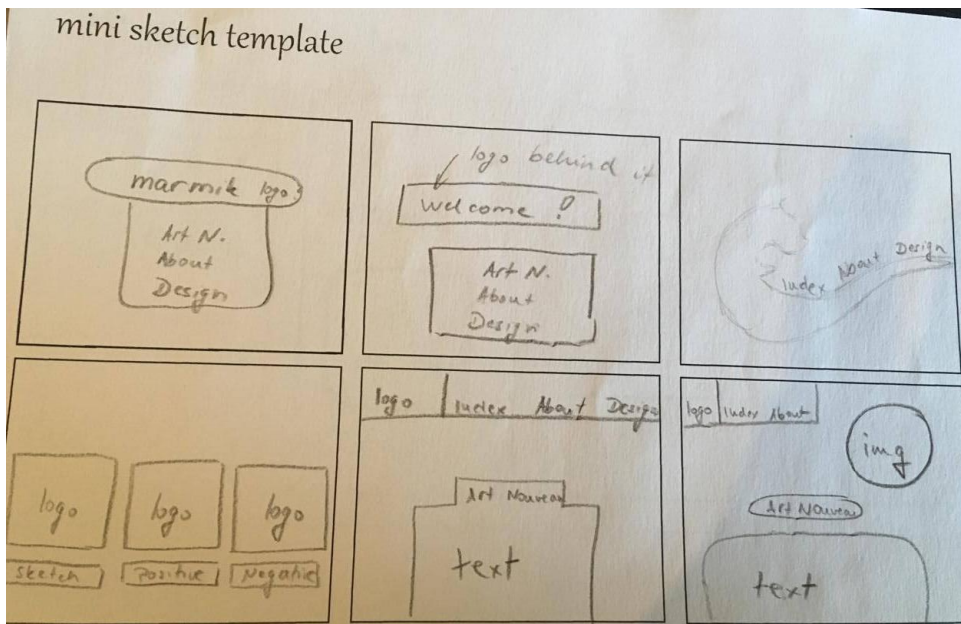 mini sketch template
marmik logo
Art N.
About
Design
logo behind it
Welcome !
Art N.
About
Design
Index About Design
logo
logo
logo
Sketch
Positive
Negative
logo
Index About Design
Art Nouveau
text
logo
Index About
img
Art Nouveau
text